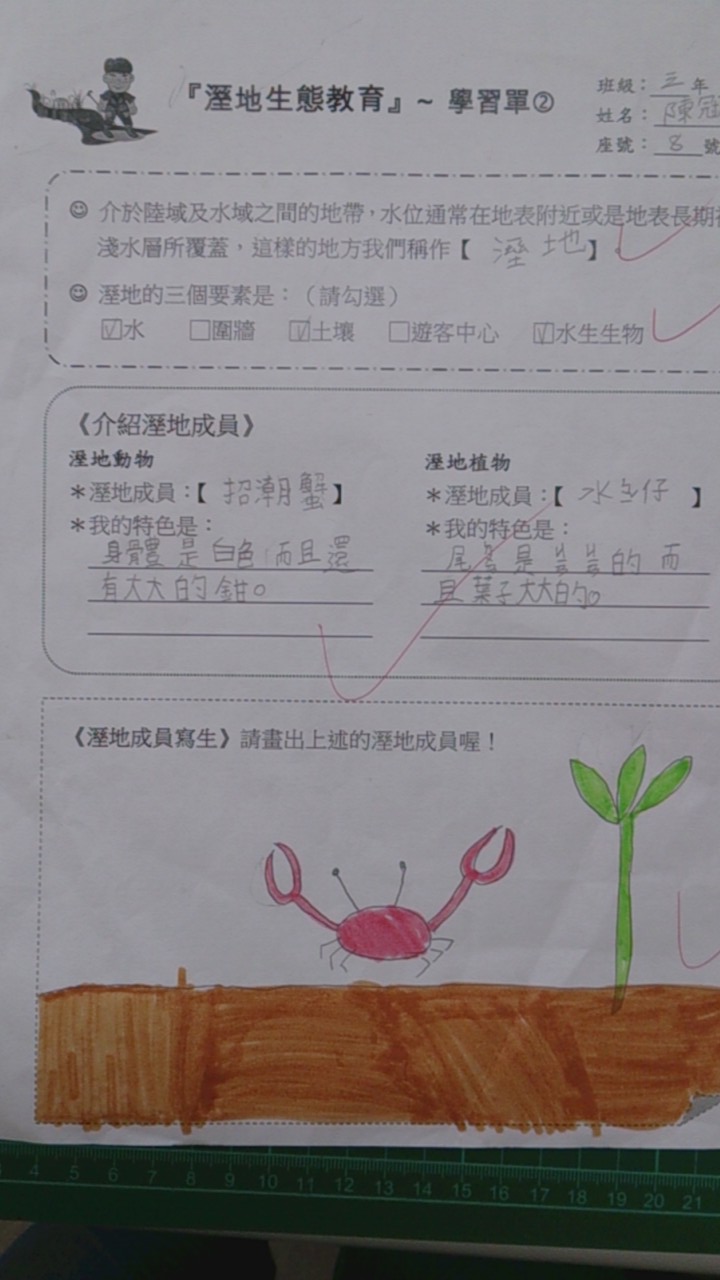 『溼地生態教育』~ 學習單②
班級：三年
姓名：陳冠
座號：8號
介於陸域及水域之間的地帶，水位通常在地表附近或是地表長期
淺水層所覆蓋，這樣的地方我們稱作【溼地】
溼地的三個要素是：（請勾選）
☑水 □圍牆 ☑土壤 □遊客中心 ☑水生生物
《介紹溼地成員》
溼地動物
＊溼地成員：【招潮蟹】
＊我的特色是：
身體是白色，而且還
有大大的鉗。
溼地植物
＊溼地成員：【水仔】
＊我的特色是：
尾是尖尖的 而
且葉子大大的。
《溼地成員寫生》請畫出上述的溼地成員喔！
4 5 6 7 8 9 10 11 12 13 14 15 16 17 18 19 20 21